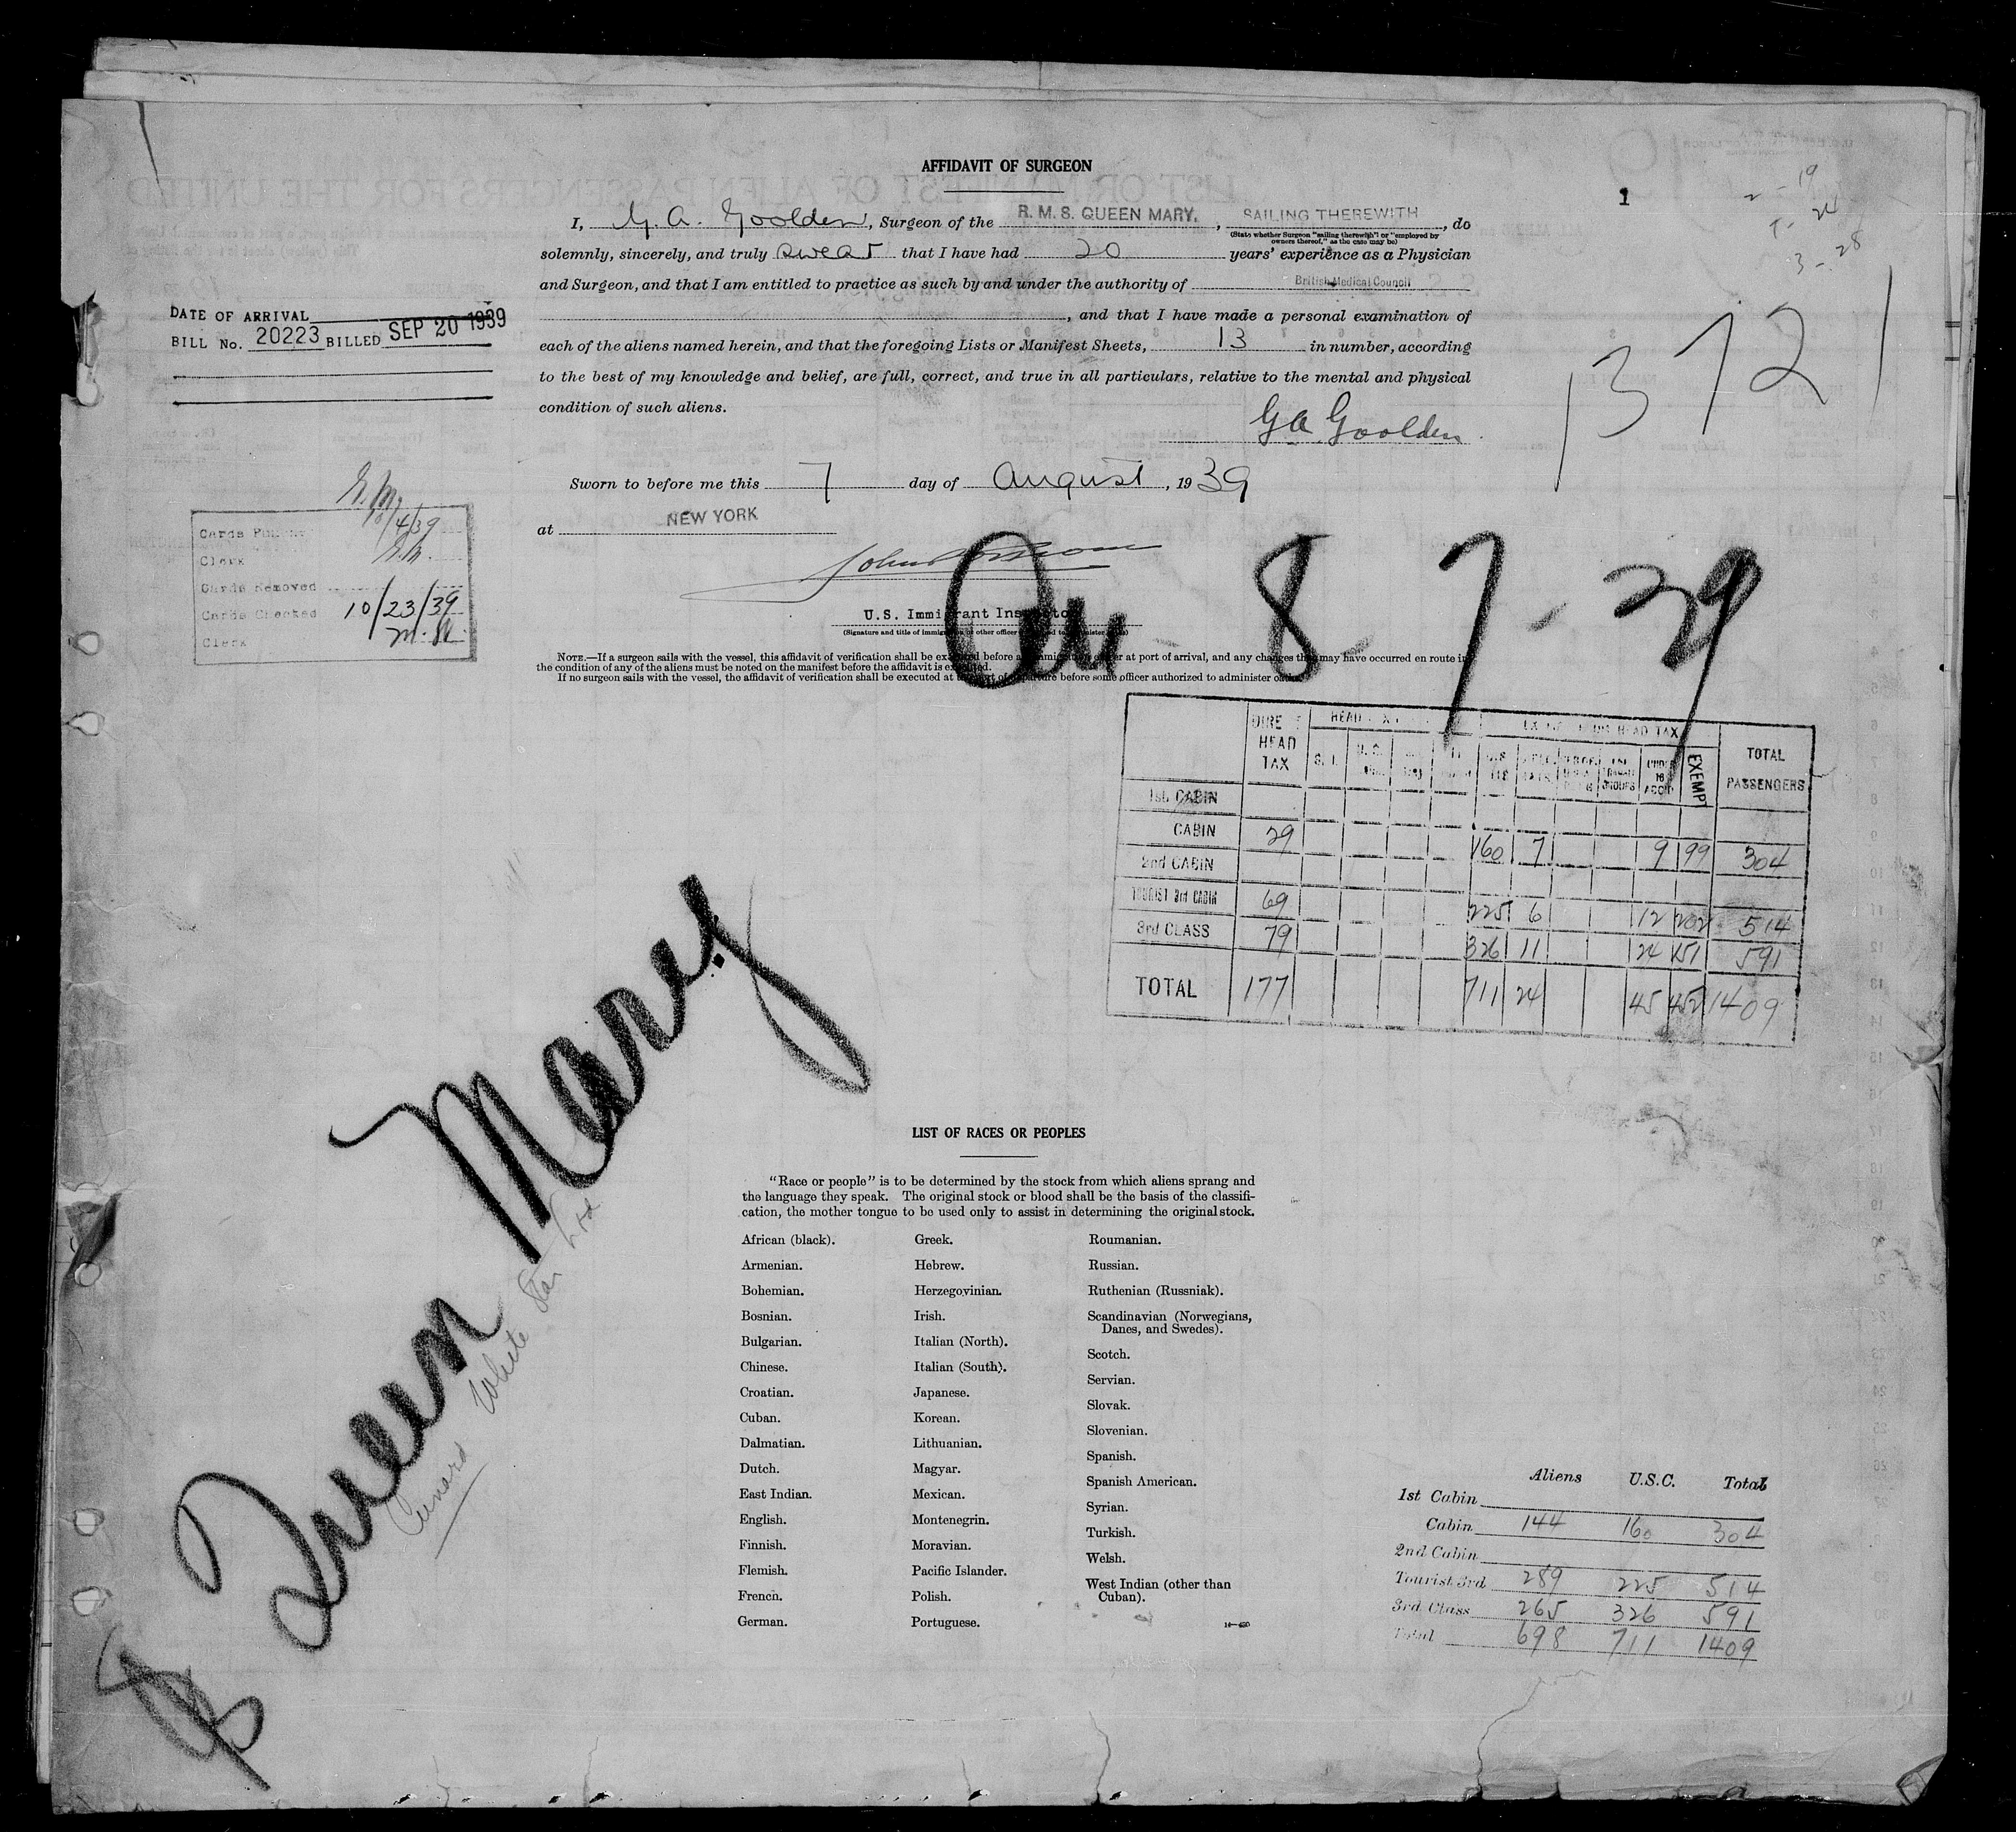 AFFIDAVIT OF SURGEON
1
2 - 19
24
3 - 28
I, G. A. Goolden, Surgeon of the R. M. S. QUEEN MARY, SAILING THEREWITH, do
(State whether Surgeon "sailing therewith" or "employed by
owners thereof," as the case may be)
solemnly, sincerely, and truly swear that I have had 20 years' experience as a Physician
and Surgeon, and that I am entitled to practice as such by and under the authority of British Medical Council
, and that I have made a personal examination of
each of the aliens named herein, and that the foregoing Lists or Manifest Sheets, 13 in number, according
to the best of my knowledge and belief, are full, correct, and true in all particulars, relative to the mental and physical
condition of such aliens.
G A Goolden
13721
DATE OF ARRIVAL
BILL No. 20223 BILLED SEP 20 1939
Sworn to before me this 7 day of August, 1939
at NEW YORK
10/4/39
Clerk
Cards Removed
Cards Checked 10/23/39
Clerk
U.S. Immigrant Inspector
(Signature and title of immigration or other officer authorized to administer oaths)
Arr - 8 - 7 - 39
NOTE.—If a surgeon sails with the vessel, this affidavit of verification shall be executed before an immigration officer at port of arrival, and any changes that may have occurred en route in
the condition of any of the aliens must be noted on the manifest before the affidavit is executed.
If no surgeon sails with the vessel, the affidavit of verification shall be executed at the port of departure before some officer authorized to administer oaths.
HEAD TAX
UNDER 16 ACCP'D
EXEMPT
TOTAL PASSENGERS
1st CABIN
CABIN 29 160 7 9 99 304
2nd CABIN
TOURIST 3rd CABIN 69 225 6 12 202 514
3rd CLASS 79 326 11 24 151 591
TOTAL 177 711 24 45 452 1409
SS Queen Mary
Cunard White Star Ltd
LIST OF RACES OR PEOPLES
"Race or people" is to be determined by the stock from which aliens sprang and
the language they speak. The original stock or blood shall be the basis of the classifi-
cation, the mother tongue to be used only to assist in determining the original stock.
African (black).
Armenian.
Bohemian.
Bosnian.
Bulgarian.
Chinese.
Croatian.
Cuban.
Dalmatian.
Dutch.
East Indian.
English.
Finnish.
Flemish.
French.
German.
Greek.
Hebrew.
Herzegovinian.
Irish.
Italian (North).
Italian (South).
Japanese.
Korean.
Lithuanian.
Magyar.
Mexican.
Montenegrin.
Moravian.
Pacific Islander.
Polish.
Portuguese.
Roumanian.
Russian.
Ruthenian (Russniak).
Scandinavian (Norwegians,
Danes, and Swedes).
Scotch.
Servian.
Slovak.
Slovenian.
Spanish.
Spanish American.
Syrian.
Turkish.
Welsh.
West Indian (other than
Cuban).
Aliens U.S.C. Total
1st Cabin
Cabin 144 160 304
2nd Cabin
Tourist 3rd 289 225 514
3rd Class 265 326 591
Total 698 711 1409